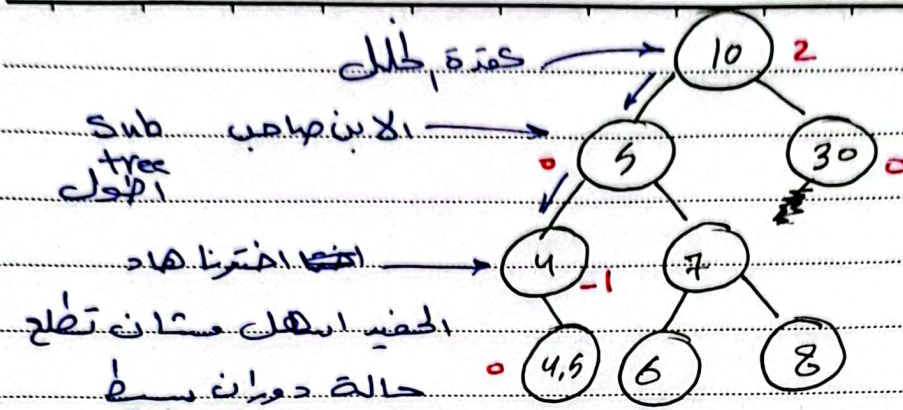 عقدة الخلل 10 2
الابن صاحب Sub
tree
اطول
0 5 30 0
اخترنا هاد 4 -1 7
الحفيد اسهل مشان تطلع
حالة دوران بسيط
0 4,5 6 8